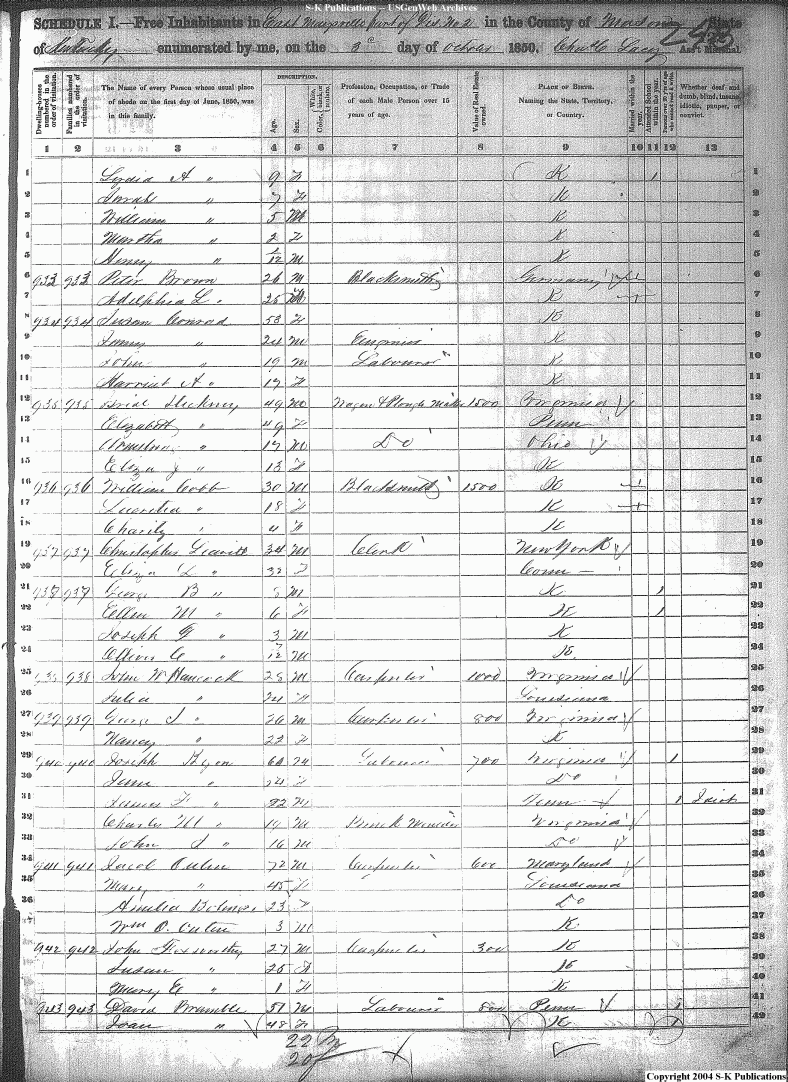 S-K Publications -- USGenWeb Archives
SCHEDULE I.—Free Inhabitants in East Maysville part of Dis No 2 in the County of Mason State
of Kentucky enumerated by me, on the 3d day of October 1850. Chas C Lacey Ass't Marshal.
DESCRIPTION.
Dwelling-houses numbered in the order of visitation.
Families numbered in the order of visitation.
The Name of every Person whose usual place of abode on the first day of June, 1850, was in this family.
Age.
Sex.
Color, White, black, or mulatto.
Profession, Occupation, or Trade of each Male Person over 15 years of age.
Value of Real Estate owned.
PLACE OF BIRTH. Naming the State, Territory, or Country.
Married within the year.
Attended School within the year.
Persons over 20 y'rs of age who cannot read & write.
Whether deaf and dumb, blind, insane, idiotic, pauper, or convict.
1 2 3 4 5 6 7 8 9 10 11 12 13
1 Lydia A " 9 F K 1 1
2 Sarah " 7 F K 2
3 William " 5 M K 3
4 Martha " 2 F K 4
5 Henry " 2/12 M K 5
6 933 933 Peter Brown 26 M Blacksmith Germany 6
7 L " 25 K 7
8 934 934 Susan Conrad 53 F K 8
9 " 24 M K 9
10 John " 19 M Labourer K 10
11 Harriet A " 17 F K 11
12 935 935 49 M Wagon & Plough Maker 1500 Virginia 12
13 Elizabeth " 49 F Penn 13
14 " 17 M Do Ohio 14
15 Eliza J " 13 F K 15
16 936 936 William Cobb 30 M Blacksmith 1500 K 16
17 Lucretia " 18 F K 17
18 Charity " 4 F K 18
19 937 937 Christopher Leavitt 34 M Clerk New York 19
20 Eliza L " 32 F Conn 20
21 937 937 George B " 8 M K 1 21
22 Ellen M " 6 F K 1 22
23 Joseph G " 3 M K 23
24 " 12 M K 24
25 938 938 John W Hancock 28 M Carpenter 1000 Virginia 25
26 Julia " 24 F Louisiana 26
27 939 939 George S " 26 M Carpenter 800 Virginia 27
28 Nancy " 22 F K 28
29 940 940 Joseph 60 M Labourer 700 Virginia 1 29
30 Jane " 54 F Do 30
31 James F " 22 M 1 Idiot 31
32 Charles M " 19 M Virginia 32
33 John S " 16 M Do 33
34 941 941 Jacob Outen 72 M Carpenter 600 Maryland 34
35 Mary " 45 F Louisiana 35
36 Amelia 23 F Do 36
37 Wm O. Outen 3 M K 37
38 942 942 John Foxworthy 27 M Carpenter 300 K 38
39 Susan " 26 F K 39
40 Mary E " 1 F K 40
41 943 943 David Bramble 51 M Labourer 800 Penn 1 41
42 Joan " 48 F K 42
22 M
20 F
Copyright 2004 S-K Publications